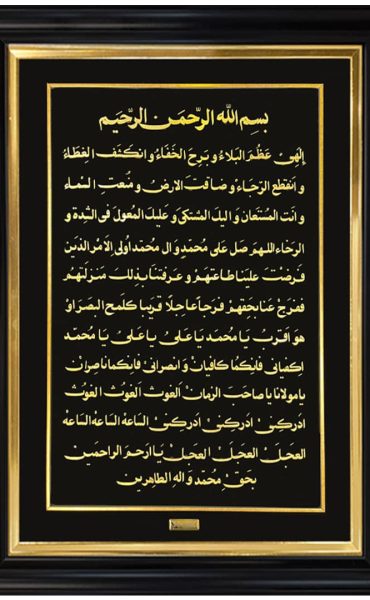 بسم الله الرحمن الرحیم
إلهی عظم البلاء و برح الخفاء و انکشف الغطاء
و انقطع الرجاء و ضاقت الارض و منعت السماء
و انت المستعان و الیک المشتکی و علیک المعول فی الشدة و
الرخاء اللهم صل علی محمد و ال محمد اولی الامر الذین
فرضت علینا طاعتهم و عرفتنا بذلک منزلتهم
ففرج عنا بحقهم فرجا عاجلا قریبا کلمح البصر او
هو اقرب یا محمد یا علی یا علی یا محمد
اکفیانی فانکما کافیان و انصرانی فانکما ناصران
یا مولانا یا صاحب الزمان الغوث الغوث الغوث
ادرکنی ادرکنی ادرکنی الساعة الساعة الساعة
العجل العجل العجل یا ارحم الراحمین
بحق محمد و اله الطاهرین